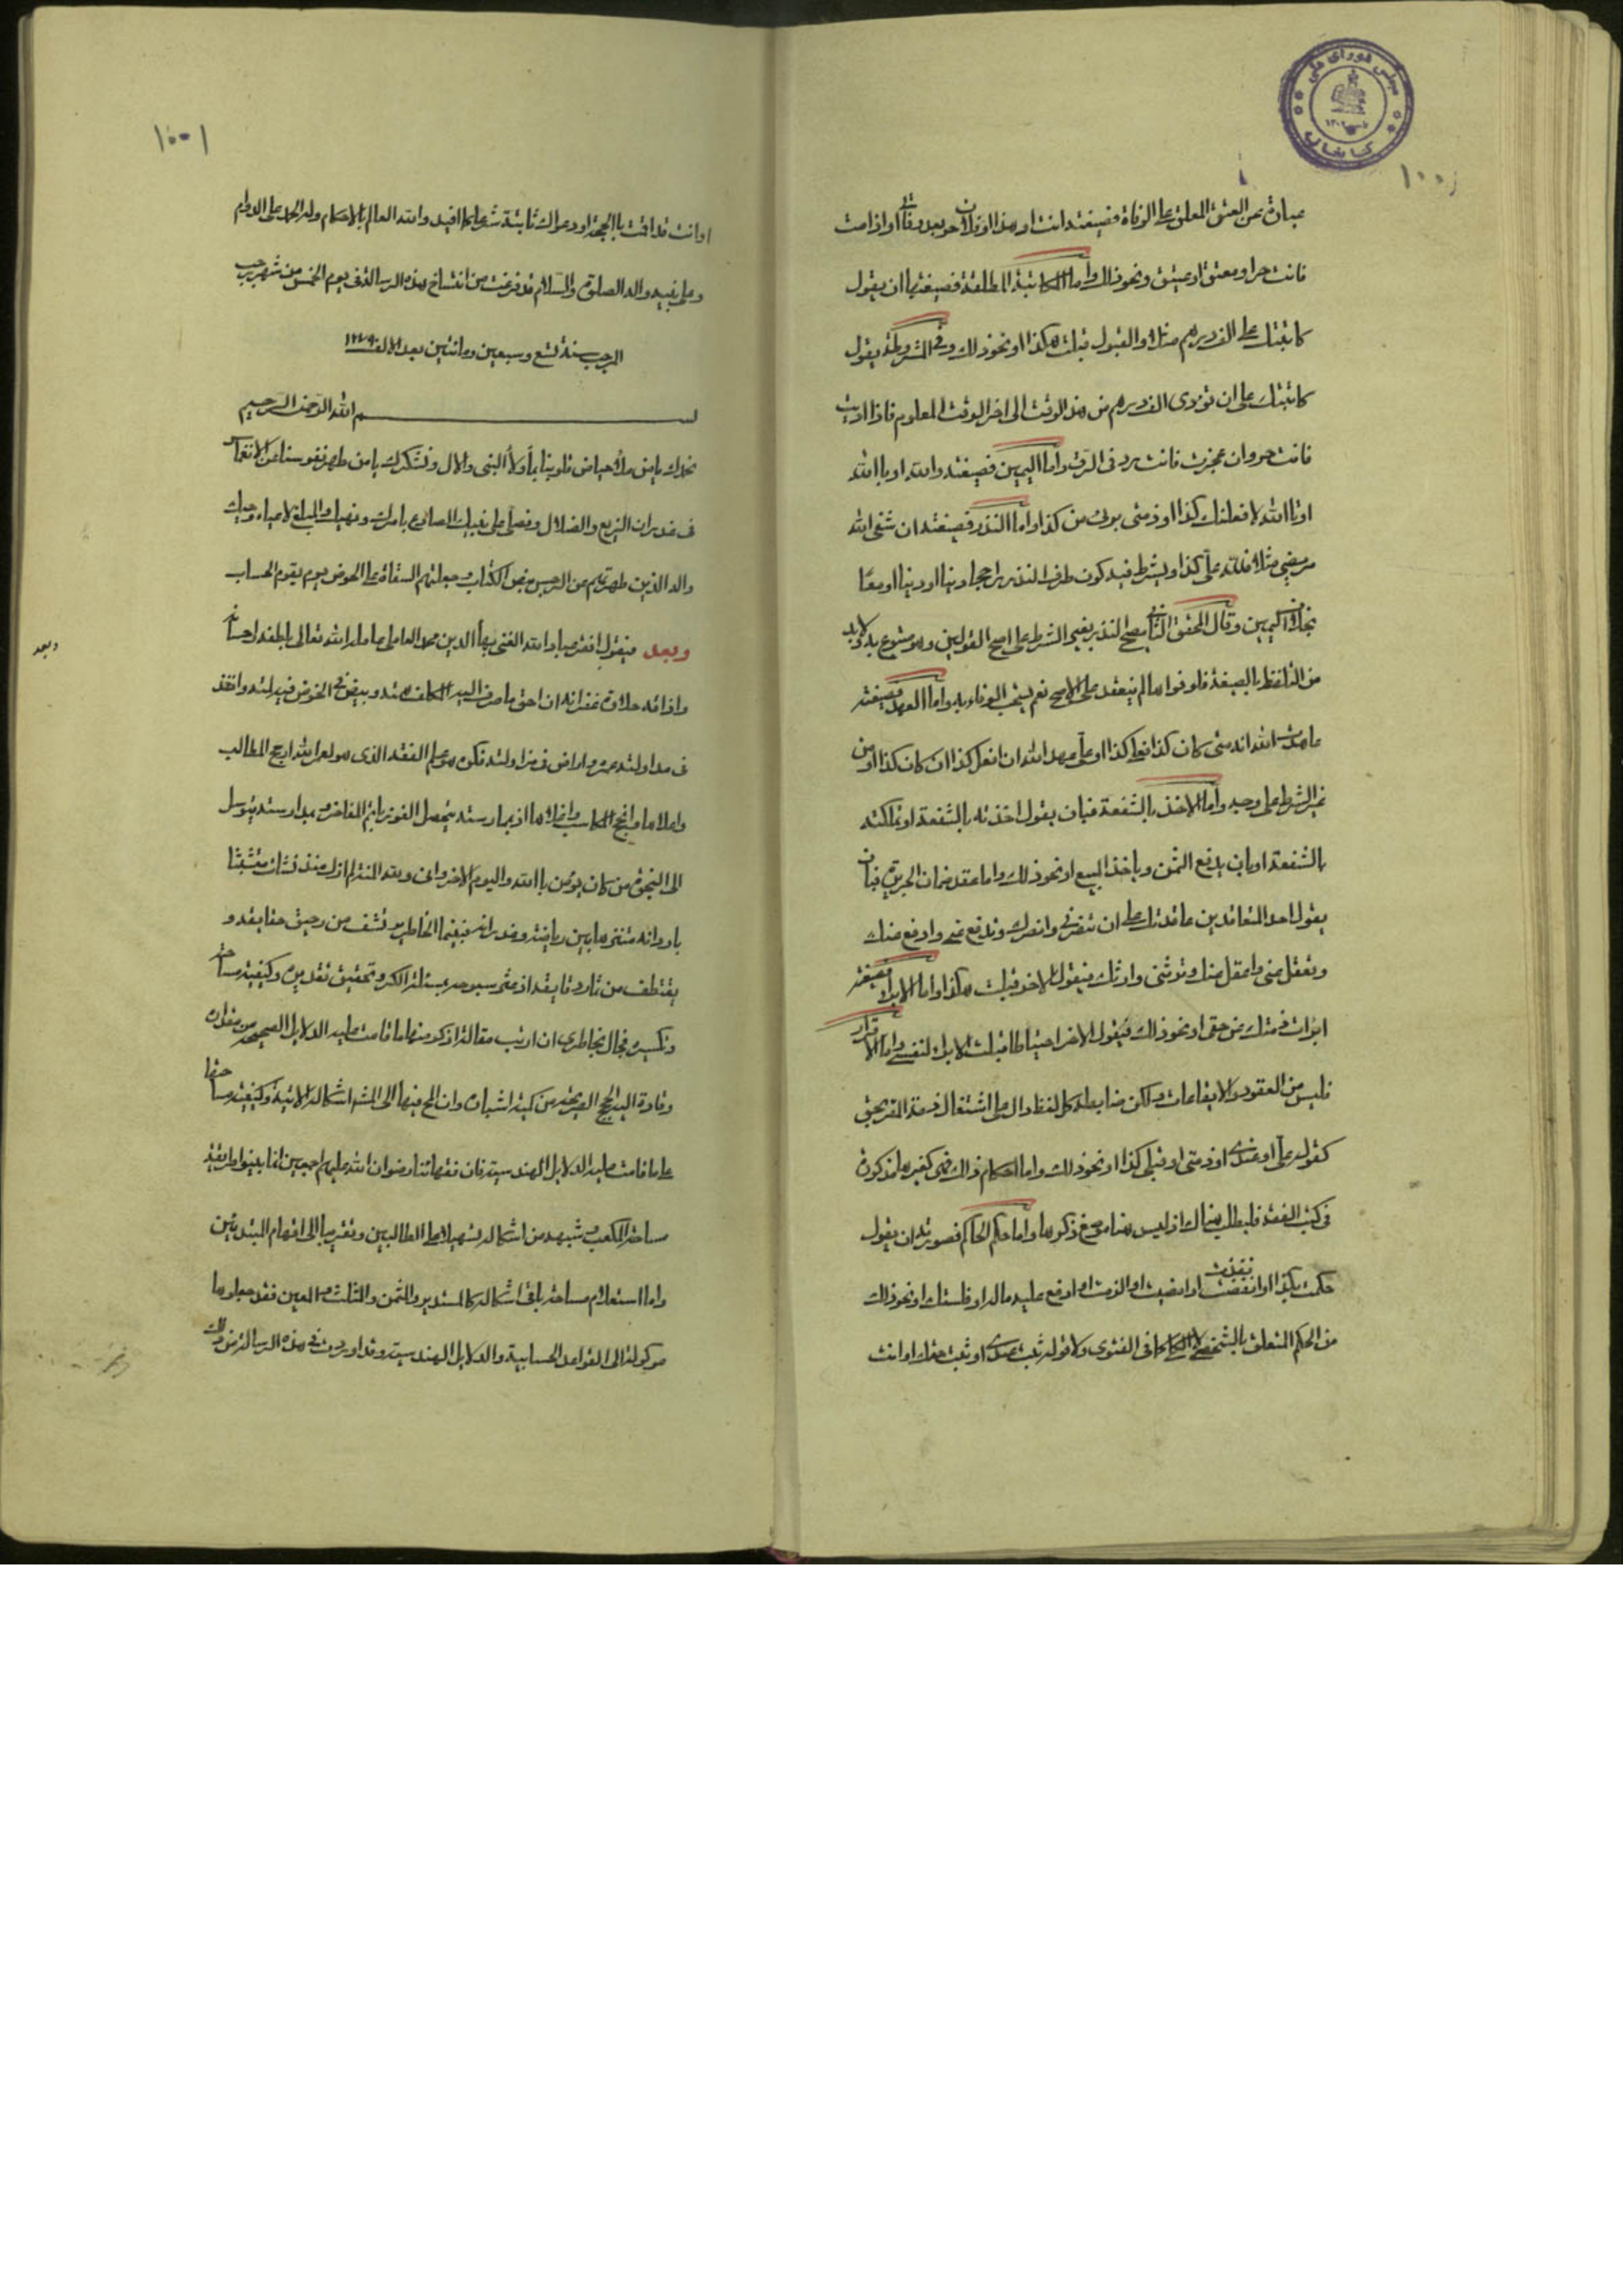 عبارة عن العتق المعلق على الوفاة فصيغته انت او هذا او فلان حر بعد وفاتي او اذا مت
فانت حر او معتق او عتيق ونحو ذلك واما المكاتبة المطلقة فصيغتها ان يقول
كاتبتك على الف درهم مثلا والقبول قبلت هكذا او نحو ذلك وفي المشروطة يقول
كاتبتك على ان تؤدي الف درهم من هذا الوقت الى اخر الوقت المعلوم فاذا اديت
فانت حر وان عجزت فانت رد في الرق واما اليمين فصيغته والله او بالله
او تالله لافعلنك كذا او ذمتي برئ من كذا واما النذر فصيغته ان شفى الله
مريضي مثلا فلله علي كذا ويشترط فيه كون طرف النذر راجحا دينا او دنيا او معا
بخلاف اليمين وقال المحقق الثاني يصح النذر بغير الشرط على اصح القولين وهو متبرع به ولابد
من التلفظ بالصيغة فلو نواها لم ينعقد على الاصح نعم يستحب الوفاء به واما العهد فصيغته
عاهدت الله انه متى كان كذا فعلي كذا او علي عهد الله ان افعل كذا ان كان كذا او من
غير الشرط على وجه واما الاخذ بالشفعة فبان يقول اخذته بالشفعة او تملكته
بالشفعة او بان يدفع الثمن وياخذ المبيع او نحو ذلك واما عقد ضمان الجريرة فبان
يقول احد المتعاقدين عاقدتك على ان تنصرني وانصرك وتدفع عني وادفع عنك
وتعقل عني واعقل عنك وترثني وارثك فيقول الاخر قبلت هكذا واما الابراء فصيغته
ابرات ذمتك من حقي او نحو ذلك فيقول الاخر احتياطا قبلت الابراء لنفسي واما الاقرار
فليس من العقود والايقاعات ولكن ضابطه كل لفظ دال على اشتغال ذمة المقر بحق
كقوله علي او عندي او ذمتي او قبلي كذا او نحو ذلك واما احكام ذلك فهي كثيرة مذكورة
في كتب الفقه فليطلب هناك اذ ليس هنا موضع ذكرها واما حكم الحاكم فصورته ان يقول
حكمت بكذا او انفذت او امضيت او الزمت او ادفع عليه ماله او فلستك او نحو ذلك
من الحكم المتعلق بالشخص لا الكلي كما في الفتوى ولا قوله ثبت عندي او ثبت حقك او انت
او انت قد اقمت بالحجة او دعواك ثابتة شرعا كما افيد والله العالم بالاحكام وله الحمد على الدوام
وعلى نبيه واله الصلوة والسلام قد فرغت من انتساخ هذه الرسالة في يوم الخميس من شهر رجب
المرجب سنة تسع وسبعين ومائتين بعد الالف ١٢٧٩
بسم الله الرحمن الرحيم
نحمدك يا من ملأ حياض قلوبنا بماء ولاء النبي والال ونشكرك يا من طهر نفوسنا عن الانغماس
في غدران الزيغ والضلال ونصلي على نبيك الصادع بامرك ونهيك والمبلغ لاعباء وحيك
واله الذين طهرتهم عن الرجس بنص الكتاب وجعلتهم السقاة على الحوض يوم يقوم الحساب
وبعد فيقول افقر عباد الله الغني بهاء الدين محمد العاملي عامله الله تعالى بلطفه واحسانه
واذاقه حلاوة غفرانه ان احق ما صرف اليه المكلف همته وبيض في الخوض فيه لمته وانفذ
في مداولته عمره واراض في مزاولته فكره هو علم الفقه الذي هو لعمر الله اربح المطالب
واعلاها وانجح المكاسب واغلاها اذ بممارسته يحصل الفوز باتم المفاخر وبمدارسته يتوسل
الى النجاة من كان يؤمن بالله واليوم الاخر واني ولله المنة لم ازل منذ نشأت متشبثا
باوراقه متنزها بين رياضه وغدرانه فبينما الخاطر يرتشف من رحيق حقايقه و
يقتطف من ثمار دقايقه اذ عثر سبوحه بمسئلة الكر وتحقيق تقديره وكيفية مساحته
وتكسيره فجال بخاطري ان ارتب مقالة اذكر منها ما قامت عليه الدلايل الصحيحة من مقداره
وقادة اليه الحجج الصريحة من كمية اشباره وان المح فيها الى اشكاله الاتية وكيفية مساحتها
على ما قامت عليه الدلايل الهندسية فان فقهائنا رضوان الله عليهم اجمعين انما بينوا طريقة
مساحة المكعب وشبهه من اشكاله تسهيلا على الطالبين وتقريبا الى افهام المبتدئين
واما استعلام مساحة باقي اشكاله كالمستدير والمثمن والمثلث والمعين فقد جعلوها
موكولة الى القواعد الحسابية والدلايل الهندسية وقد اوردت في هذه الرسالة من ذلك